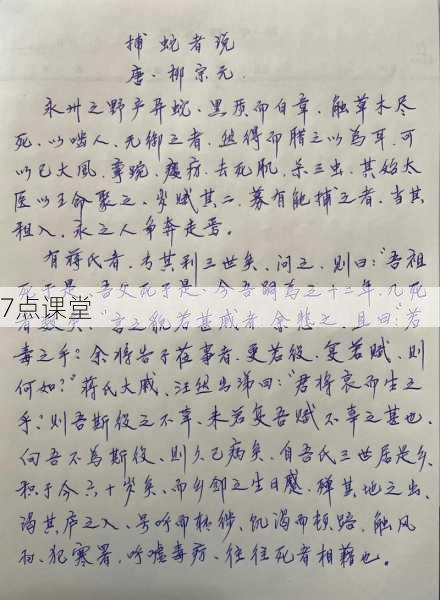 捕蛇者说
唐·柳宗元.
永州之野产异蛇.黑质而白章.触草木尽
死.以啮人.无御之者.然得而腊之以为耳.可
以已大风.挛踠.瘘疠.去死肌.杀三虫.其始太
医以王命聚之.岁赋其二.募有能捕之者.当其
租入.永之人争奔走焉。
有蒋氏者.专其利三世矣.问之.则曰:"吾祖
死于是.吾父死于是.今吾嗣为之十二年.几死
者数矣."言之貌若甚戚者.余悲之.且曰:"若
7点课堂
毒之乎?余将告于莅事者.更若役.复若赋.则
何如?"蒋氏大戚.汪然出涕曰:"君将哀而生之
乎?则吾斯役之不幸.未若复吾赋不幸之甚也.
向吾不为斯役.则久已病矣.自吾氏三世居是乡.
积于今六十岁矣.而乡邻之生日蹙.殚其地之出.
竭其庐之入.号呼而转徙.饥渴而顿踣.触风
雨.犯寒暑.呼嘘毒疠.往往死者相藉也。